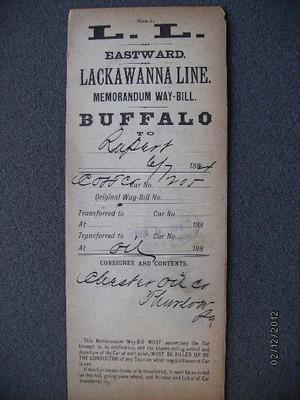 L. L.
EASTWARD.
LACKAWANNA LINE.
MEMORANDUM WAY-BILL.
BUFFALO
TO
Rupert
6/7 188
Car No. 205
Original Way-Bill No.
Transferred to Car No.
At 188
Transferred to Car No.
At 188
Oil
CONSIGNEE AND CONTENTS.
Chester Oil Co
Thurlow
Pa
This Memorandum Way-Bill MUST accompany the Car
through to its destination, and the blanks noting arrival and
departure of the Car at each point, MUST BE FILLED UP BY
THE CONDUCTOR of any Train on which any Lackawanna Car
is used.
If the Car breaks down, or is transferred, it must be so noted
on this bill, giving place where, and Number and Initial of Car
transferred to.
02/12/2012